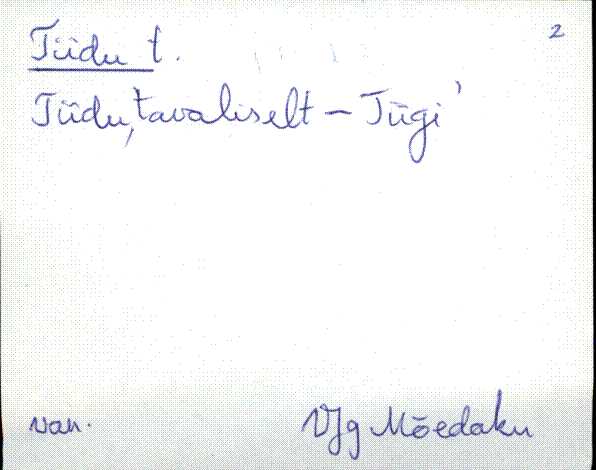 2
Tiidu t.
Tiidu, tavaliselt – Tiigi'
van.
VJg Mõedaku